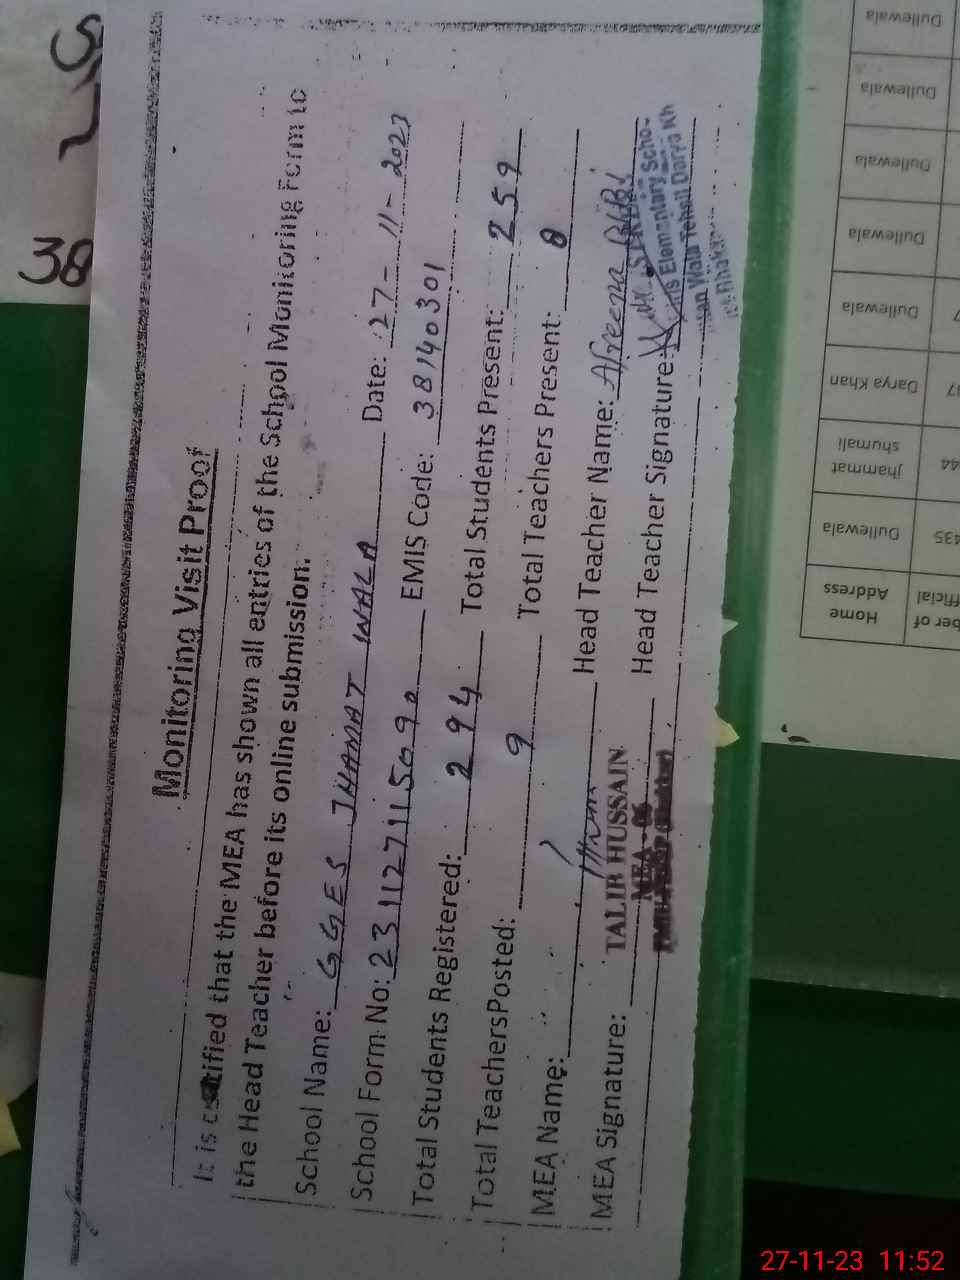 Monitoring Visit Proof
It is certified that the MEA has shown all entries of the School Monitoring Form to
the Head Teacher before its online submission.
School Name: GGES JHAMAT WALA Date: 27-11-2023
School Form No: 231127115690 EMIS Code: 38140301
Total Students Registered: 294 Total Students Present: 259
Total TeachersPosted: 9 Total Teachers Present: 8
MEA Name: Head Teacher Name: BIBI
TALIB HUSSAIN
MEA Signature: Head Teacher Signature:
MEA - 06
Elementary Scho
Wala Tehsil Darya Kh
38
ber of
fficial
Home
Address
435
Dullewala
44
jhammat
shumali
37
Darya Khan
7
Dullewala
Dullewala
Dullewala
Dullewala
Dullewala
27-11-23 11:52